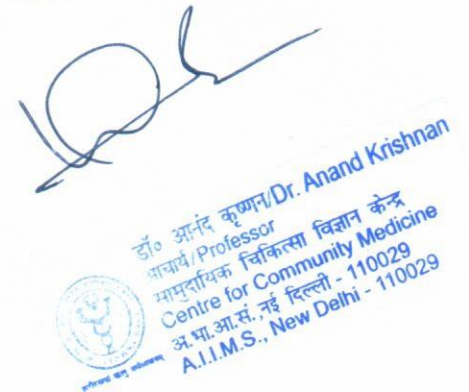 डॉ० आनंद कृष्णन/Dr. Anand Krishnan
आचार्य/Professor
सामुदायिक चिकित्सा विज्ञान केन्द्र
Centre for Community Medicine
अ.भा.आ.सं.,नई दिल्ली - 110029
A.I.I.M.S., New Delhi - 110029